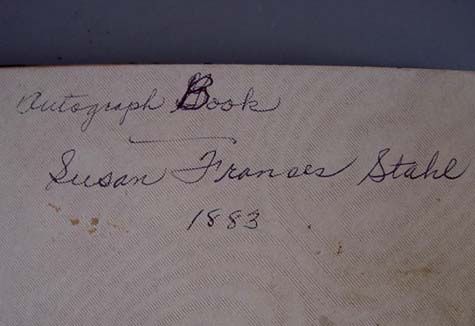 Autograph Book
Susan Frances Stahl
1883